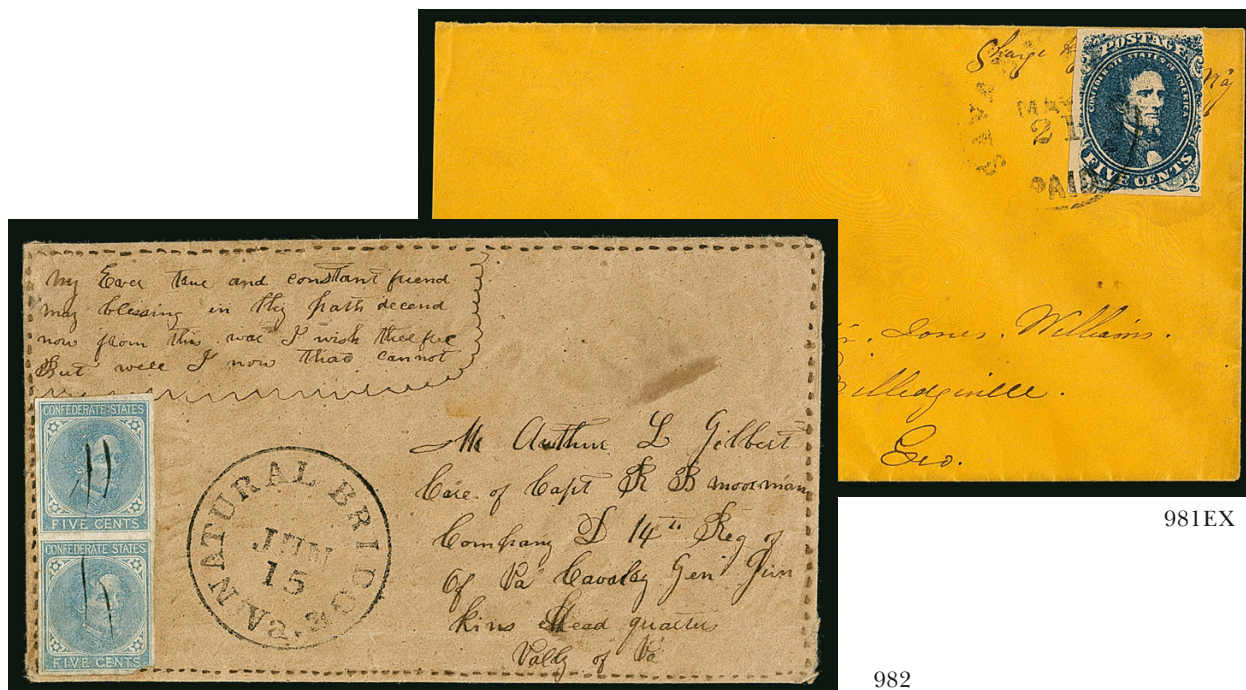 POSTAGE
CONFEDERATE STATES OF AMERICA
FIVE CENTS
Charge
21
PAID
Jones. Williams.
Geo.
981EX
My Ever true and constant friend
may blessing in thy path decend
now from this war I wish thee free
But well I now thad cannot
CONFEDERATE STATES
FIVE CENTS
CONFEDERATE STATES
FIVE CENTS
NATURAL BRIDGE. VA.
JUN
15
Mr Authur L Gilbert
Care of Capt R B moorman
Company D 14th Reg of
Of Va Cavalry Gen Jin
kins Head quarters
of Va
982